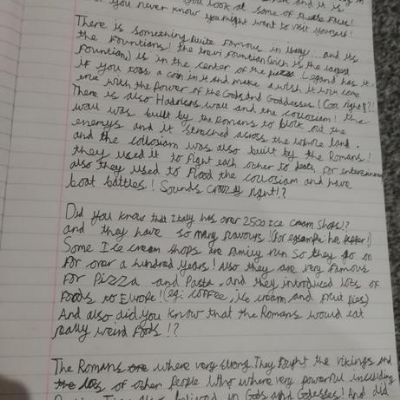 you look at some of these facts!
you never know you might want to visit yourself!
There is something quite famous in Italy... and its
the Fountains! the trevi Fountain (which is the largest
Fountain) is in the center of the Legend has it
if you toss a coin in it and make a wish it will come
true with the power of the Gods and Goddesses! (Cool right?!)
There is also Hadrians wall and the collosium! the
wall was built by the Romans to block out the
enemys and it stretched across the whole land.
and the collosiam was also built by the Romans!
they used it to Fight each other to death, For entertainment
also they used to Flood the collosiam and have
boat battles! Sounds crazy right!?
Did you know that Italy has over 2500 Ice cream shops!?
and they have so many flavours! (For example
Some Ice cream shops are Family run So they go on
For over a hundred years! Also they are very Famous
For Pizza and Pasta, and they introduced lots of
Foods to Europe! (eg: coffee, Ice cream and fruit pies)
And also did you know that the Romans would eat
really weird Foods!?
The Romans where very strong They Fought the vikings and
of other people Who where very powerful including
believed in Gods and Godesses! And did